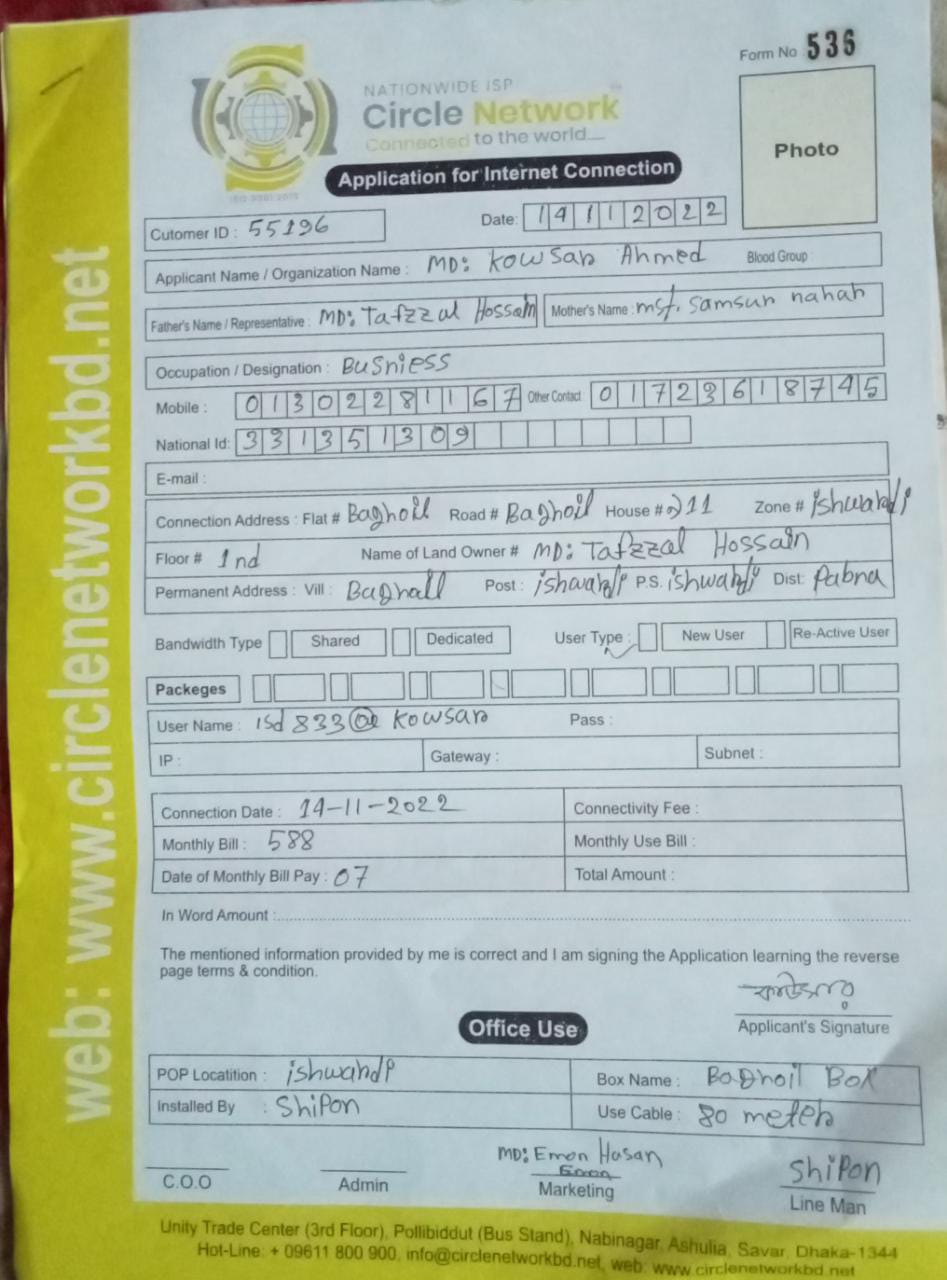 Form No 536
NATIONWIDE ISP
Circle Network
Connected to the world....
ISO 9001:2015
Photo
Application for Internet Connection
Cutomer ID : 55196 Date: 14112022
Applicant Name / Organization Name : MD: Kowsar Ahmed Blood Group
Father's Name / Representative : MD: Tafzzal Hossain Mother's Name : mst. samsun nahar
Occupation / Designation : Busniess
Mobile : 01302281167 Other Contact 01723618745
National Id: 331351309
E-mail :
Connection Address : Flat # Baghoil Road # Baghoil House # 211 Zone # ishwardi
Floor # 1nd Name of Land Owner # MD: Tafzzal Hossain
Permanent Address : Vill : Baghall Post : ishwardi P.S. ishwardi Dist: Pabna
Bandwidth Type Shared Dedicated User Type : New User Re-Active User
Packeges
User Name : isd 833 @ kowsar Pass :
IP : Gateway : Subnet :
Connection Date : 14-11-2022 Connectivity Fee :
Monthly Bill : 588 Monthly Use Bill :
Date of Monthly Bill Pay : 07 Total Amount :
In Word Amount :
The mentioned information provided by me is correct and I am signing the Application learning the reverse
page terms & condition.
কাউসার
Applicant's Signature
Office Use
POP Locatition : ishwardi Box Name : Baghoil Box
Installed By : Shipon Use Cable : 80 meter
MD: Emon Hasan
Emon Shipon
C.O.O Admin Marketing Line Man
Unity Trade Center (3rd Floor), Pollibiddut (Bus Stand), Nabinagar, Ashulia, Savar, Dhaka-1344
Hot-Line: + 09611 800 900, info@circlenetworkbd.net, web: www.circlenetworkbd.net
web: www.circlenetworkbd.net